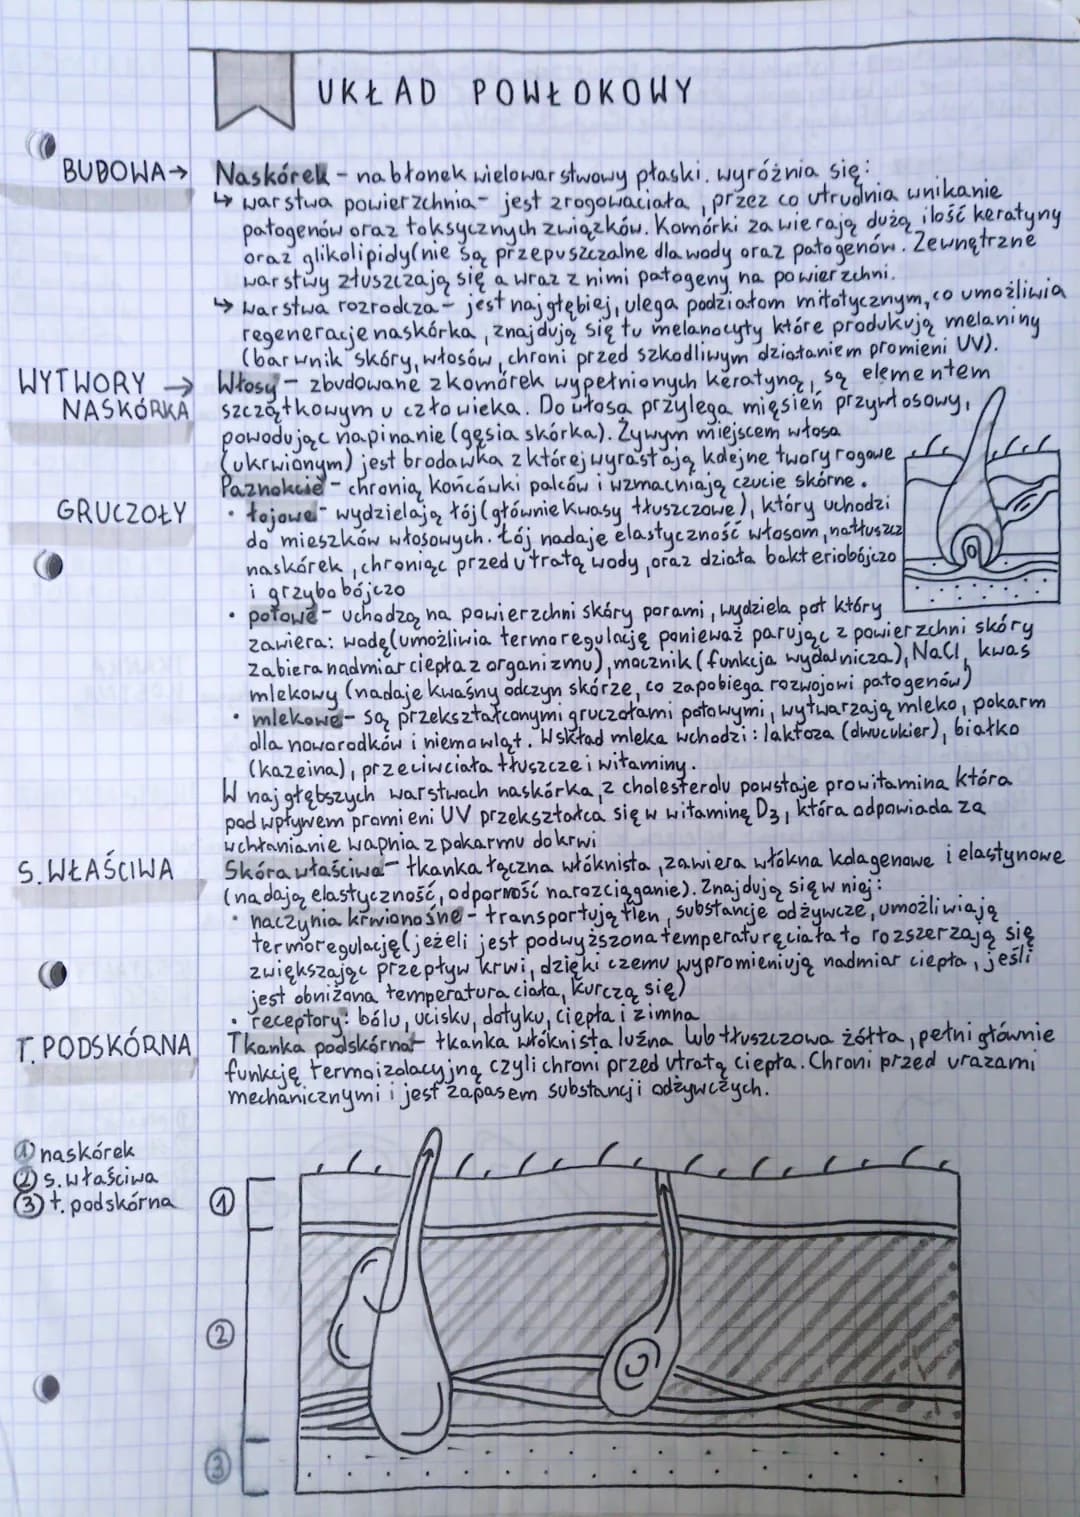 UKŁAD POWŁOKOWY
BUDOWA→ Naskórek - nabłonek wielowarstwowy płaski. wyróżnia się:
↳ warstwa powierzchnia - jest zrogowaciała, przez co utrudnia wnikanie
patogenów oraz toksycznych związków. Komórki zawierają dużą ilość keratyny
oraz glikolipidy (nie są przepuszczalne dla wody oraz patogenów. Zewnętrzne
warstwy złuszczają się a wraz z nimi patogeny na powierzchni.
↳ warstwa rozrodcza - jest najgłębiej, ulega podziałom mitotycznym, co umożliwia
regeneracje naskórka, znajdują się tu melanocyty które produkują melaniny
(barwnik skóry, włosów, chroni przed szkodliwym działaniem promieni UV).
WYTWORY → NASKÓRKA
Włosy - zbudowane z komórek wypełnionych keratyną, są elementem
szczątkowym u człowieka. Do włosa przylega mięsień przywłosowy,
powodując napinanie (gęsia skórka). Żywym miejscem włosa
(ukrwionym) jest brodawka z której wyrastają kolejne twory rogowe
Paznokcie - chronią końcówki palców i wzmacniają czucie skórne.
GRUCZOŁY • łojowe - wydzielają łój (głównie kwasy tłuszczowe), który uchodzi
do mieszków włosowych. Łój nadaje elastyczność włosom, natłuszcz
naskórek, chroniąc przed utratą wody, oraz działa bakteriobójczo
i grzybobójczo
• potowe - uchodzą na powierzchni skóry porami, wydziela pot który
zawiera: wodę (umożliwia termoregulację ponieważ parując z powierzchni skóry
zabiera nadmiar ciepła z organizmu), mocznik (funkcja wydalnicza), NaCl, kwas
mlekowy (nadaje kwaśny odczyn skórze, co zapobiega rozwojowi patogenów)
• mlekowe - są przekształconymi gruczołami potowymi, wytwarzają mleko, pokarm
dla noworodków i niemowląt. W skład mleka wchodzi: laktoza (dwucukier), białko
(kazeina), przeciwciała tłuszcze i witaminy.
W najgłębszych warstwach naskórka, z cholesterolu powstaje prowitamina która
pod wpływem promieni UV przekształca się w witaminę D3, która odpowiada za
wchłanianie wapnia z pokarmu do krwi
S. WŁAŚCIWA Skóra właściwa - tkanka łączna włóknista, zawiera włókna kolagenowe i elastynowe
(nadają elastyczność, odporność na rozciąganie). Znajdują się w niej:
• naczynia krwionośne - transportują tlen, substancje odżywcze, umożliwiają
termoregulację (jeżeli jest podwyższona temperaturę ciała to rozszerzają się
zwiększając przepływ krwi, dzięki czemu wypromieniują nadmiar ciepła, jeśli
jest obniżona temperatura ciała, kurczą się)
• receptory: bólu, ucisku, dotyku, ciepła i zimna
T. PODSKÓRNA Tkanka podskórna - tkanka włóknista luźna lub tłuszczowa żółta, pełni głównie
funkcję termoizolacyjną czyli chroni przed utratą ciepła. Chroni przed urazami
mechanicznymi i jest zapasem substancji odżywczych.
① naskórek
② s. właściwa
③ t. podskórna
①
②
③